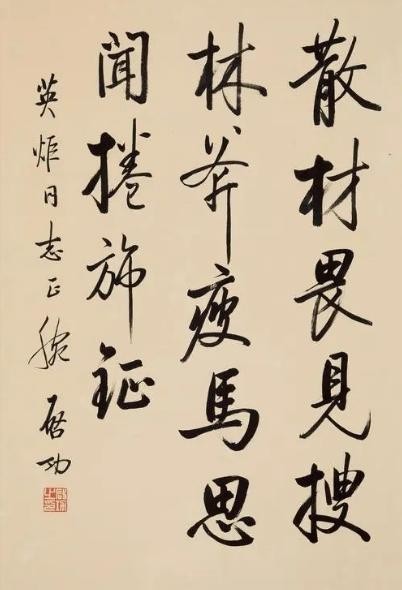 散材畏見搜
林斧瘦馬思
聞捲旆鉦
英炬同志正腕 启功